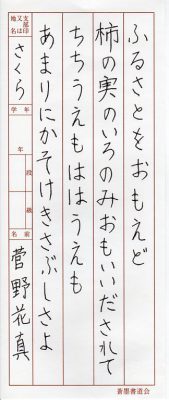 ふるさとをおもえど
柿の実のいろのみおもいだされて
ちちうえもははうえも
あまりにかそけきさぶしさよ
支部印又は地名
さくら
学年
年
段
級
名前
菅野花真
蒼墨書道会